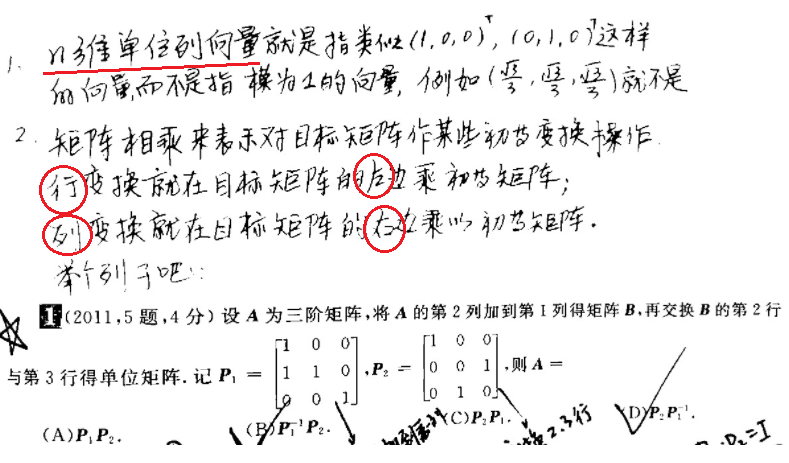 1. n维单位列向量就是指类似(1,0,0)ᵀ, (0,1,0)ᵀ这样
的向量,而不是指 模为1的向量, 例如(√3/3, √3/3, √3/3)就不是
2. 矩阵相乘来表示对目标矩阵作某些初等变换操作.
行变换就在目标矩阵的左边乘初等矩阵;
列变换就在目标矩阵的右边乘以初等矩阵.
举个列子吧::
1 (2011,5题,4分) 设 A 为三阶矩阵,将 A 的第2列加到第1列得矩阵 B,再交换 B 的第2行
与第3行得单位矩阵.记 P₁ = [1 0 0; 1 1 0; 0 0 1], P₂ = [1 0 0; 0 0 1; 0 1 0], 则 A =
(A)P₁P₂. (B)P₁⁻¹P₂. (C)P₂P₁. (D)P₂P₁⁻¹.
2.3行
P₂=I